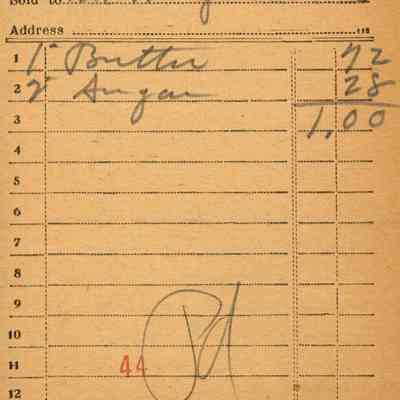 Sold to
Address
1 1# Butter 72
2 2# Sugar 28
3 1.00
4
5
6
7
8
9
10
11 44
12
Pd